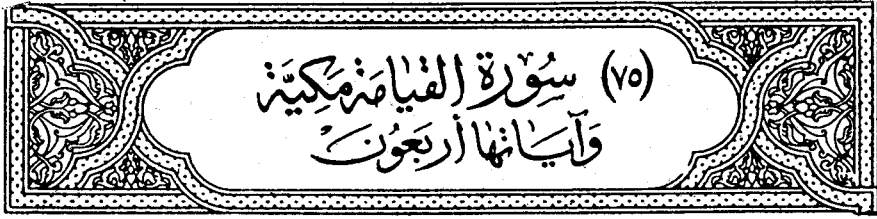 (٧٥) سُوْرَة القيَامَة مَكيَّة
وَآيَاتهَا أربَعُونَ